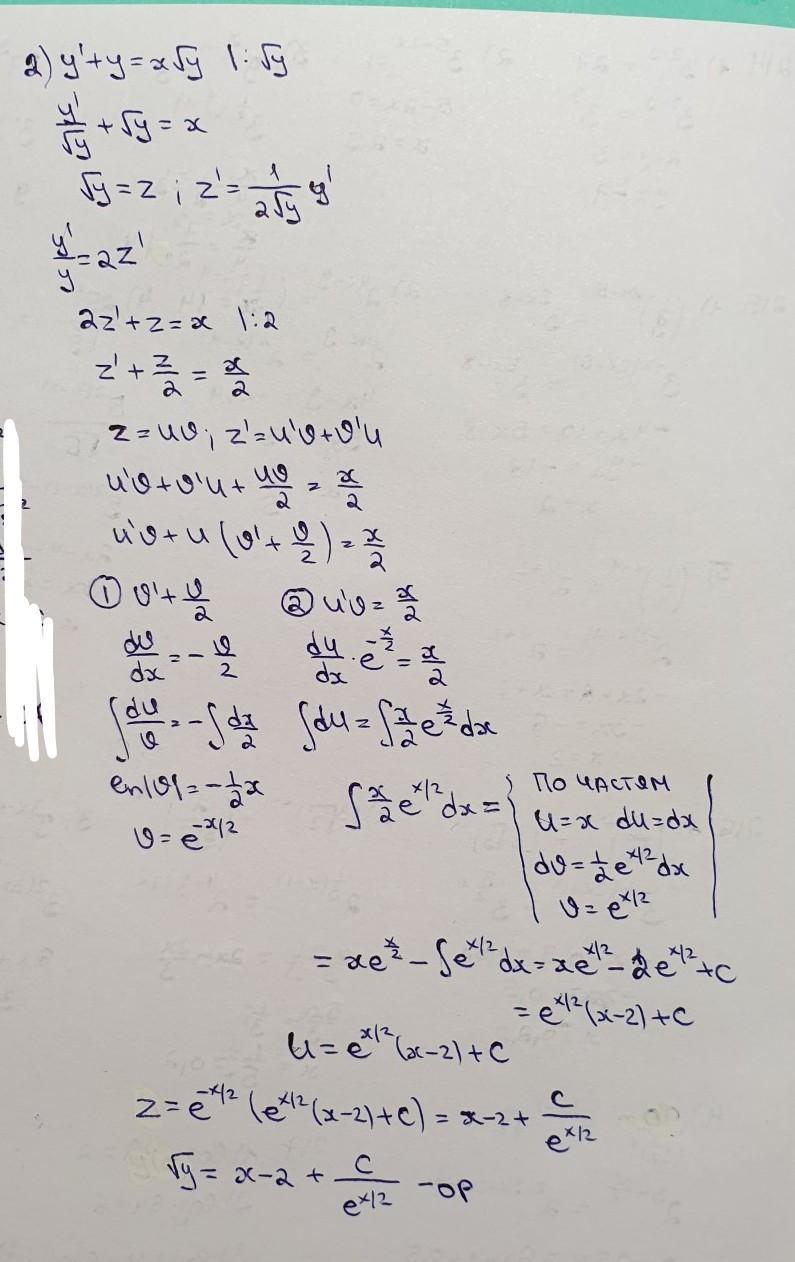 2) y'+y=x√y |:√y
y'/√y + √y = x
√y = z ; z' = 1/(2√y) y'
y'/y = 2z'
2z'+z=x |:2
z' + z/2 = x/2
z=uv; z'=u'v+v'u
u'v+v'u+ uv/2 = x/2
u'v+u(v'+ v/2) = x/2
① v'+ v/2 ② u'v= x/2
dv/dx = - v/2 du/dx · e^(-x/2) = x/2
∫ dv/v = -∫ dx/2 ∫du = ∫ x/2 e^(x/2) dx
ln|v| = -1/2 x ∫ x/2 e^(x/2) dx = { ПО ЧАСТЯМ
v = e^(-x/2) u=x du=dx
dv= 1/2 e^(x/2) dx
v= e^(x/2) |
= xe^(x/2) - ∫e^(x/2) dx = xe^(x/2) - 2e^(x/2) + C
= e^(x/2) (x-2) + C
u = e^(x/2) (x-2) + C
z = e^(-x/2) (e^(x/2) (x-2) + C) = x-2 + C/e^(x/2)
√y = x-2 + C/e^(x/2) -ОР